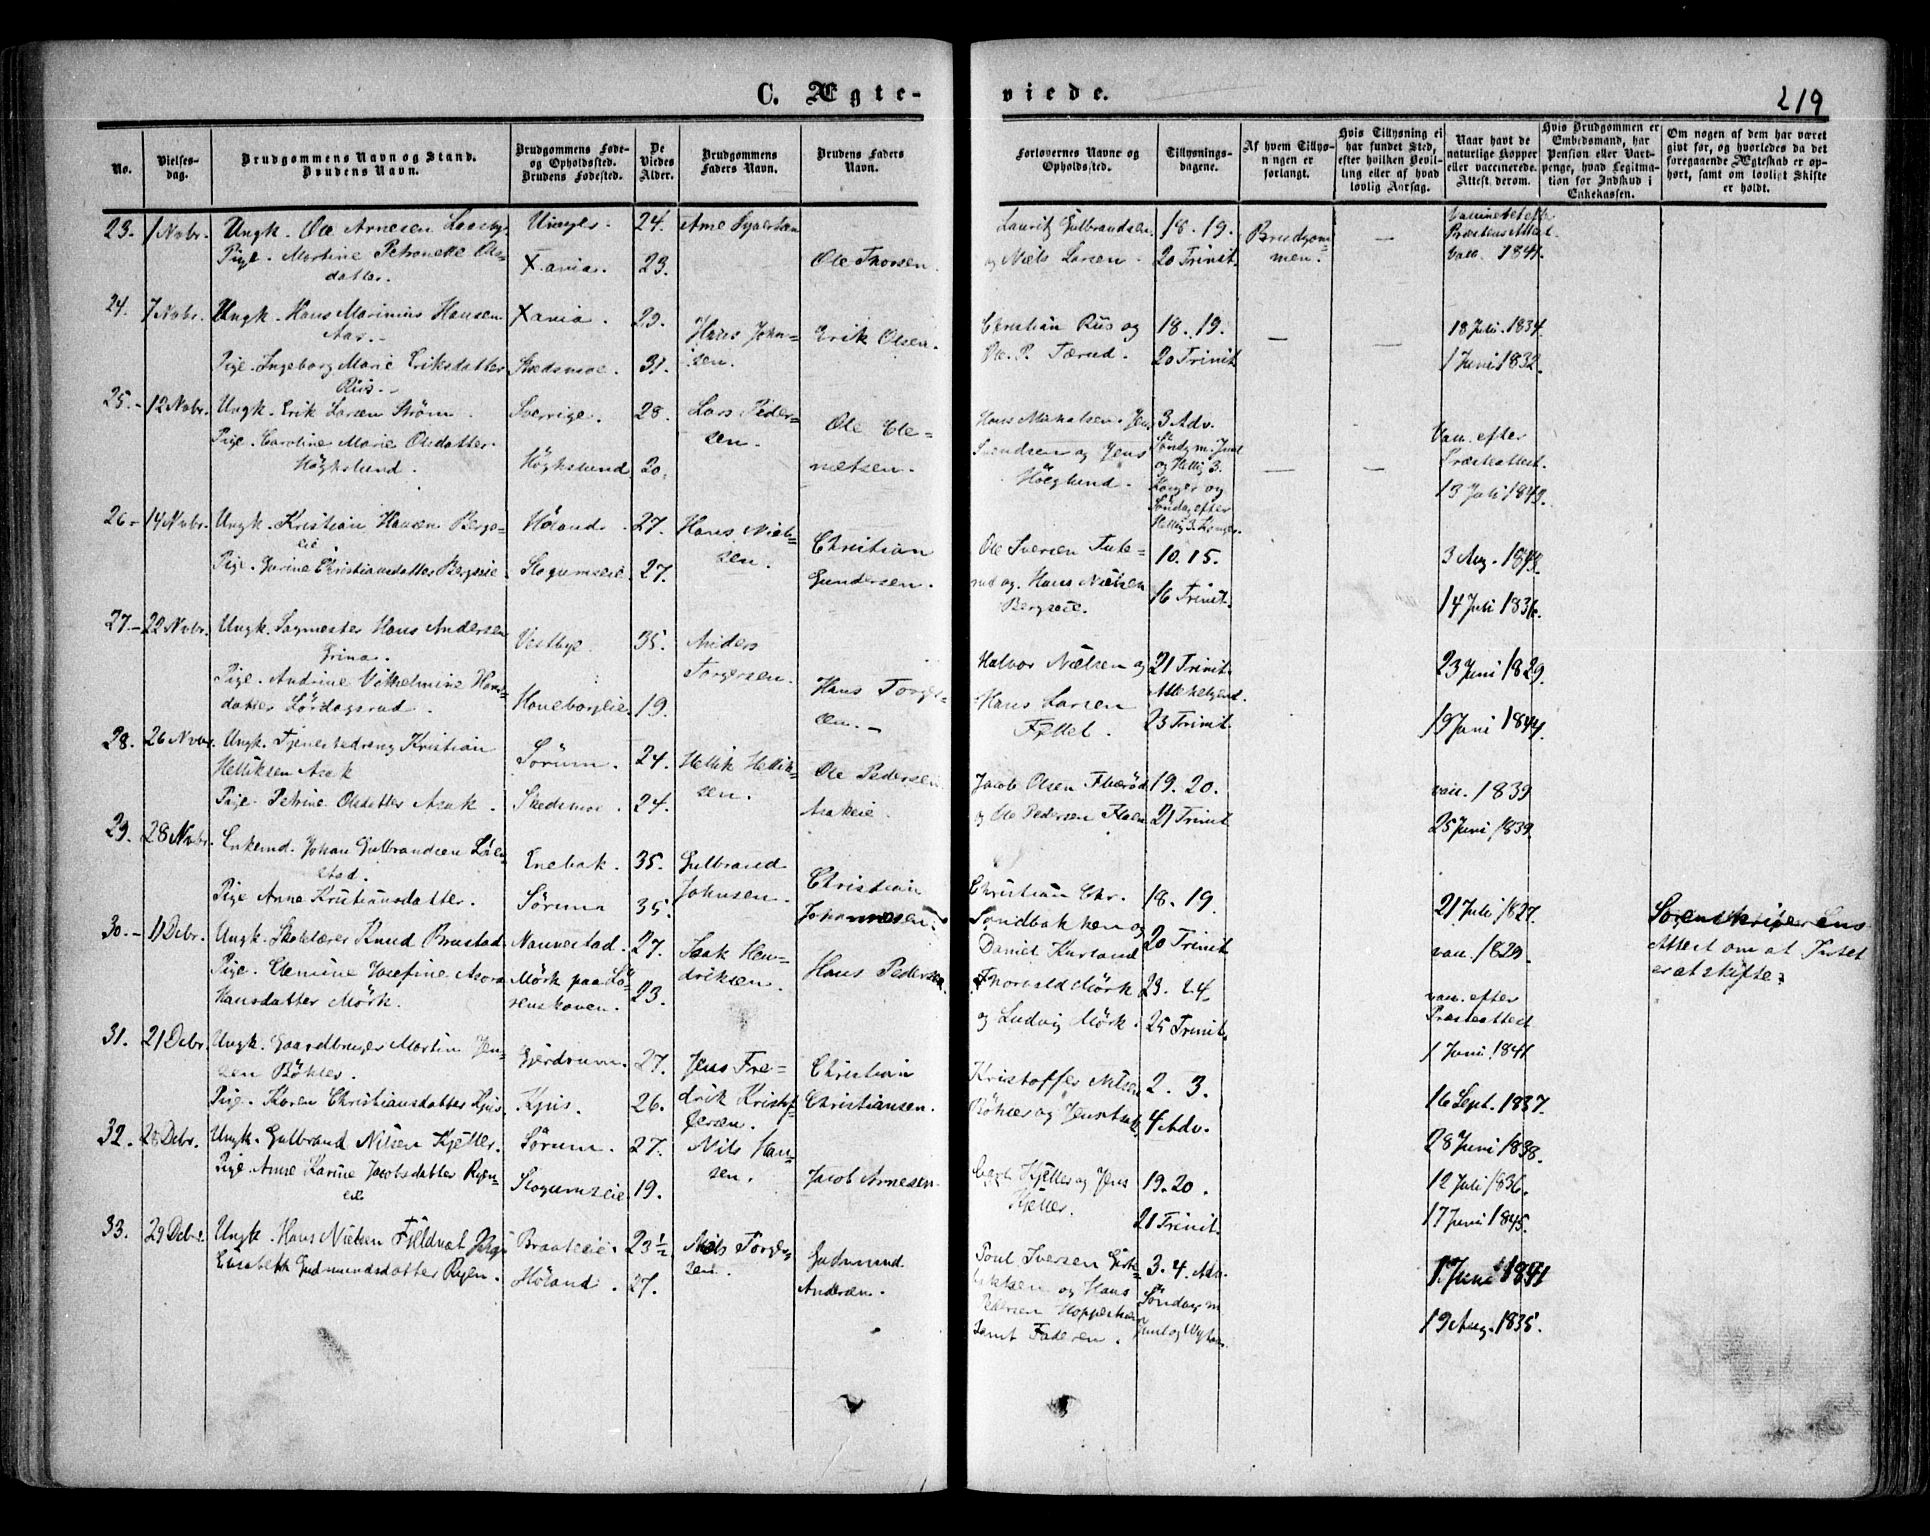 C. Ægte-
viede.
219
No.
Vielses-
dag.
Brudgommens Navn og Stand.
Brudens Navn.
Brudgommens Føde-
og Opholdssted.
Brudens Fødested.
De
Viedes
Alder.
Brudgommens
Faders Navn.
Brudens Faders
Navn.
Forlovernes Navne og
Opholdssted.
Tillysnings-
dagene.
Af hvem Tillys-
ningen er
forlangt.
Hvis Tillysning ei
har fundet Sted,
efter hvilken Bevil-
ling eller af hvad
lovlig Aarsag.
Naar havt de
naturlige Kopper
eller vaccinerede.
Attest derom.
Hvis Brudgommen er
Embedsmand, har
Pension eller Vart-
penge, hvad Legitima-
tion for Indskud i
Enkekassen.
Om nogen af dem har været
givt før, og hvorledes da det
foregaaende Ægteskab er op-
hørt, samt om lovligt Skifte
er holdt.
23. 1 Nvbr. Ungk. Ole Arnesen 24. Arne
Pige. Martine Petronelle Ols-
datter. Xania. 23. Ole Thorsen.
Lauritz Gulbrandsen 18. 19. Brudgom-
og Niels Larsen. 20 Trinit. men. —
Præstens Attest.
vacc. 1841.
24. 7 Nvbr. Ungk. Hans Marinius Hansen Xania. 29. Hans John-
Aas. sen. Erik Olsen.
Pige. Ingeborg Marie Eriksdatter Skedsmoe. 31.
Riis.
Christian Riis og 18. 19. — — 18 Juli 1834.
Ole P. Tærud. 20 Trinit. 1 Juni 1832.
25. 12 Nvbr. Ungk. Erik Larsen Strøm. Sverrige. 28. Lars Peder-
sen.
Pige. Caroline Marie Olsdatter
Høgkslund. Høgkslund 20. Ole
Hans Mikalsen. Jens 3 Adv.
Svendsen og Jens Søndg m. Juul
og Hellig 3.
Høeglund. Konger og
Søndag efter
Hellig 3 Konger.
— —
Vacc. efter
Præsteattest.
13 Juli 1849.
26. 14 Nvbr. Ungk. Kristian Hansen Bergs-
eie Høland. 27. Hans Niel-
sen.
Pige. Gurine Christiansdatter Bergseie. Slogumseie. 27. Christian
Gundersen.
Ole Iversen Tute-
rud og Hans Nielsen
Bergseie.
10. 15.
16 Trinit.
3 Aug. 1843.
14 Juli 1836.
27. 22 Nvbr. Ungk. Sagmester Hans Andersen
Grina. Vestbye. 35. Anders
Torgersen.
Pige. Andrine Vilhelmine Hans-
datter Lørdagsrud. 19. Hans Torger-
sen. —
Halvor Nielsen og 21 Trinit.
Hans Larsen Allehelgensd.
Fjellet. 23 Trinit.
23 Juni 1829.
19 Juni 1844.
28. 26 Nvbr. Ungk. Tjenestedreng Kristian
Helliksen Asak Sørum. 24. Hellik Hellik-
sen.
Pige. Petrine Olsdatter Asak. Skedsmoe. 24. Ole Pedersen
Asakeie.
Jacob Olsen 19. 20.
og Ole Pedersen 21 Trinit.
vacc. 1839
25 Juni 1839.
29. 28 Nvbr. Enkemd. Johan Gulbrandsen
Enebak. 35. Gulbrand
Johnsen.
Pige Anne Kristiansdatter. Sørum 35. Christian
Johannesen.
Christian Chr. 18. 19.
Sandbakken og
Daniel Kurland 20 Trinit.
21 Juli 1827.
vacc. 1829.
Sorenskriverens
Attest om at Boet
er at skifte.
30. 1 Debr. Ungk. Skolelærer Knud Brustad. Nannestad. 27. Isak Hen-
driksen.
Pige. Elemine Josefine Asora
Hansdatter Mørk. Mørk paa Lø-
renskoven. 23. Hans Pedersen.
Thorvald Mørk 23. 24.
og Ludvig Mørk. 25 Trinit.
vacc. efter
Præsteattest
1 Juni 1841
31. 21 Debr. Ungk. Gaardbruger Martin Jen-
sen Bøhler. Gjerdrum. 27. Jens Fre-
drik Kristof-
fersen.
Pige. Karen Christiansdatter Kjus. Kjus. 26. Christian
Christiansen.
Kristoffer Nilsen 2. 3.
Bøhler og 4 Adv.
16 Sept. 1837.
28 Juni 1838.
32. Debr. Ungk. Gulbrand Nilsen Kjeller. Sørum. 27. Nils Han-
sen.
Pige. Anne Karine Jacobsdatter Ryen-
eie Slogumseie. 19. Jacob Arnesen
Carl Kjeller og Jens 19. 20.
Kjeller. 21 Trinit.
12 Juli 1836.
17 Juni 1845.
33. 29 Debr. Ungk. Hans Nielsen Braateeie. 23 1/2 Nils Torger-
sen.
Elisabeth Gudmundsdatter Ryen. Høland. 27. Gudmund
Andersen.
Poul Iversen 3. 4. Adv.
og Hans Søndag m
Pedersen
samt Faderen.
1 Juni 1841
19 Aug. 1835.